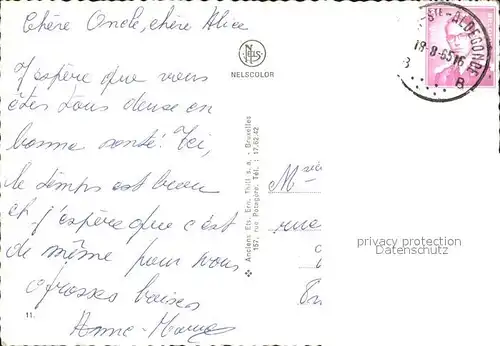 Chère Oncle, chère Alice
J'espère que vous
êtes tous deux en
bonne santé! Ici,
le temps est beau
et j'espère que c'est
de même pour vous
Grosses baises
Anne-Marie
11.
NELS
NELSCOLOR
Anciens Ets. Ern. Thill s. a. - Bruxelles
157, rue Potagère. Tél. : 17.62.42
STE-ALDEGONDE
18-8-65 16
B B
M
rue
privacy protection
Datenschutz